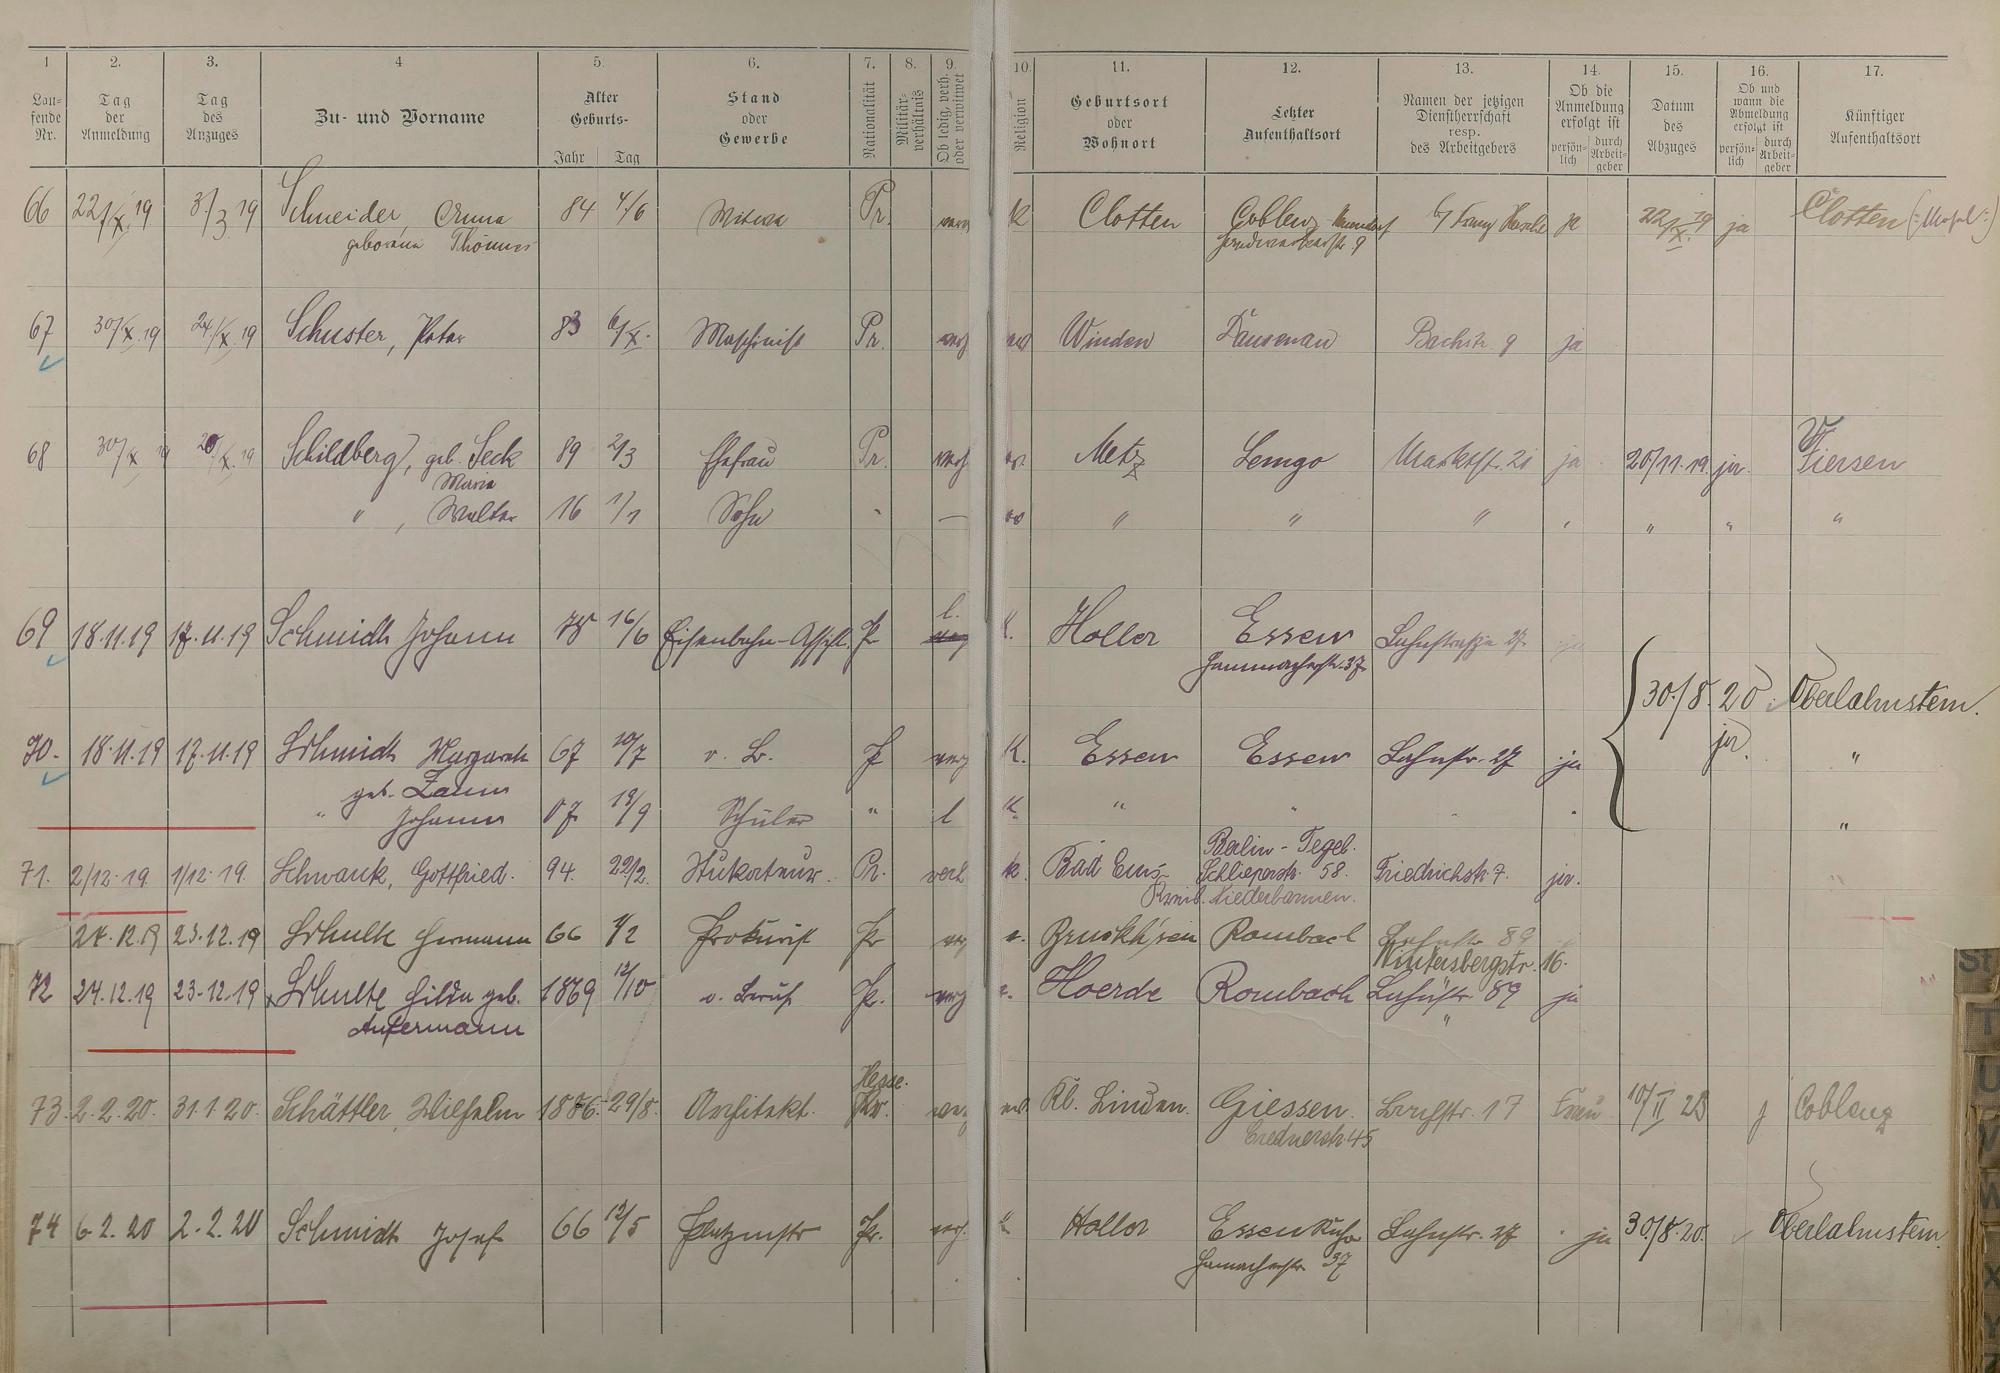 1 2. 3. 4 5. 6. 7. 8. 9. 10. 11. 12. 13. 14. 15. 16. 17.
Lau-
fende
Nr.
Tag
der
Anmeldung
Tag
des
Anzuges
Zu- und Vorname
Alter
Geburts-
Jahr Tag
Stand
oder
Gewerbe
Nationalität
Militär-
verhältnis
Ob ledig, verh.
oder verwitwet
Religion
Geburtsort
oder
Wohnort
Letzter
Aufenthaltsort
Namen der jetzigen
Dienstherrschaft
resp.
des Arbeitgebers
Ob die
Anmeldung
erfolgt ist
persön-
lich
durch
Arbeit-
geber
Datum
des
Abzuges
Ob und
wann die
Abmeldung
erfolgt ist
persön-
lich
durch
Arbeit-
geber
Künftiger
Aufenthaltsort
66 22/X. 19 3/3 19 Schneider, Anna 84 4/6 Witwe Pr. k Clotten Coblenz ja 22/X. 19 ja Clotten (:Mosel:)
geborene Thönnes
67 30/X. 19 24/X. 19 Schuster, Peter 83 6/X. Maschinist Pr. verh Winden Dausenau Bachstr. 9 ja
68 30/X 19 20/X. 19 Schildberg, geb. Seck 89 2/3 Ehefrau Pr. verh ev. Metz Lemgo Marktstr. 21 ja 20/11. 19. ja. Viersen
Maria
" , Walter 16 1/1 Sohn - — ev " " " " " " "
69 18.11.19 17.11.19 Schmidt Johann 78 16/6 Eisenbahn-Assist. Pr l. k. Holler Essen Lahnstraße 27. ja
Hammacherstr. 37.
30./8. 20 Oberlahnstein.
70. 18.11.19 17.11.19 Schmidt Margareth 67 10/7 o. B. Pr K. Essen Essen Lahnstr. 27 ja ja. "
geb. Zaun
" Johann 07 18/9 Schüler " l K. " " "
71. 2/12. 19. 1/12. 19. Schwank, Gottfried. 94. 22/2. Stukateur. Pr. verh k. Bad Ems Berlin-Tegel. Friedrichstr. 7. ja.
Schlieperstr. 58.
Niederbarnim.
24.12.19 23.12.19 Schulte Hermann 66 1/2 Prokurist Pr e. Rombach Lahnstr. 89
Wintersbergstr. 16.
72 24.12.19 23.12.19 Schulte Hilda geb. 1869 12/10 o. Beruf Pr. e. Hoerde Rombach Lahnstr. 89 ja
"
73. 2.2.20. 31.1.20. Schättler, Wilhelm 1886. 29/8. Architekt. Hesse. Kl. Linden. Giessen. 17 Frau 10/II 23 j Coblenz
Crednerstr. 45
74 6.2.20 2.2.20 Schmidt Josef 66 12/5 Platzmstr Pr. verh. k Holler Essen Ruhr Lahnstr. 27 ja 30./8. 20. Oberlahnstein.
Hamacherstr. 37
St
T
U
V
W
X
Y
Z